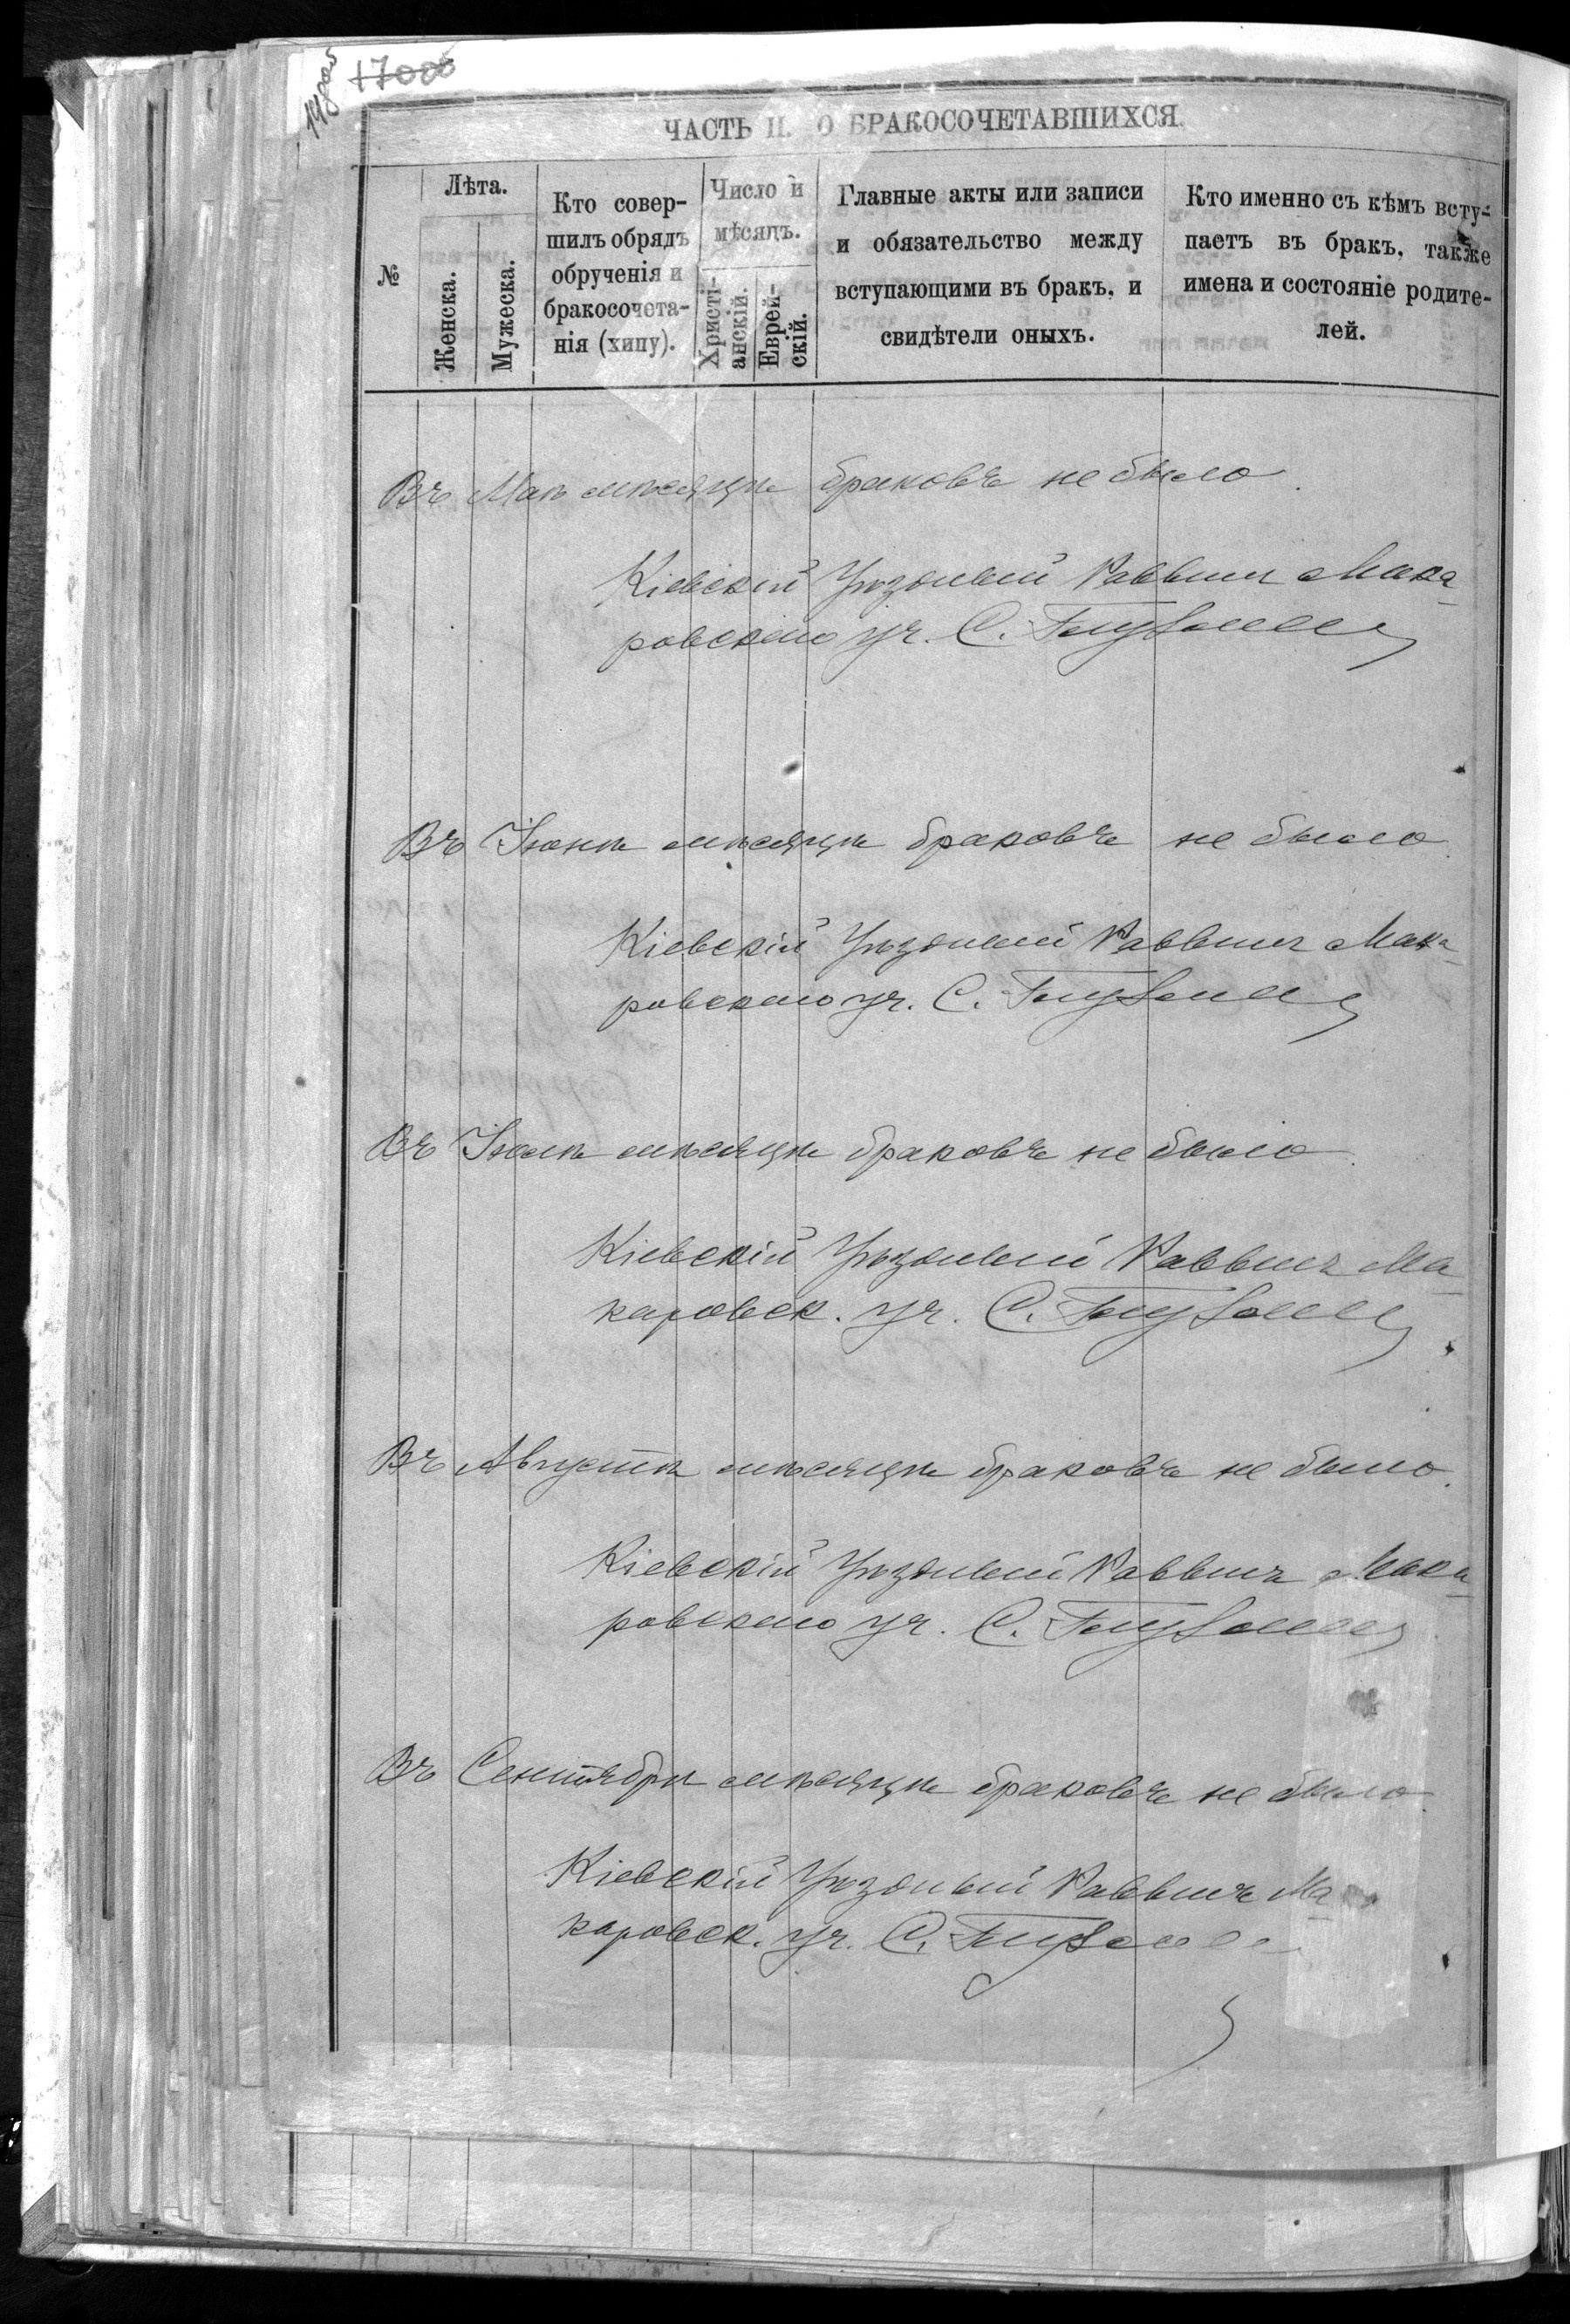 17000
ЧАСТЬ II. О БРАКОСОЧЕТАВШИХСЯ.
№
Лѣта.
Женска.
Мужеска.
Кто совер-
шилъ обрядъ
обрученія и
бракосочета-
нія (хипу).
Число и
мѣсяцъ.
Христі-
анскій.
Еврей-
скій.
Главные акты или записи
и обязательство между
вступающими въ бракъ, и
свидѣтели оныхъ.
Кто именно съ кѣмъ всту-
паетъ въ бракъ, также
имена и состояніе родите-
лей.
Въ Маѣ мѣсяцѣ браковъ не было.
Кіевскій Уѣздный Раввинъ Мака-
ровскаго уч. С.
Въ Іюнѣ мѣсяцѣ браковъ не было.
Кіевскій Уѣздный Раввинъ Мака-
ровскаго уч. С.
Въ Іюлѣ мѣсяцѣ браковъ не было.
Кіевскій Уѣздный Раввинъ Ма-
каровск. уч. С.
Въ Августѣ мѣсяцѣ браковъ не было.
Кіевскій Уѣздный Раввинъ Мака-
ровскаго уч. С.
Въ Сентябрѣ мѣсяцѣ браковъ не было.
Кіевскій Уѣздный Раввинъ Ма-
каровск. уч. С.